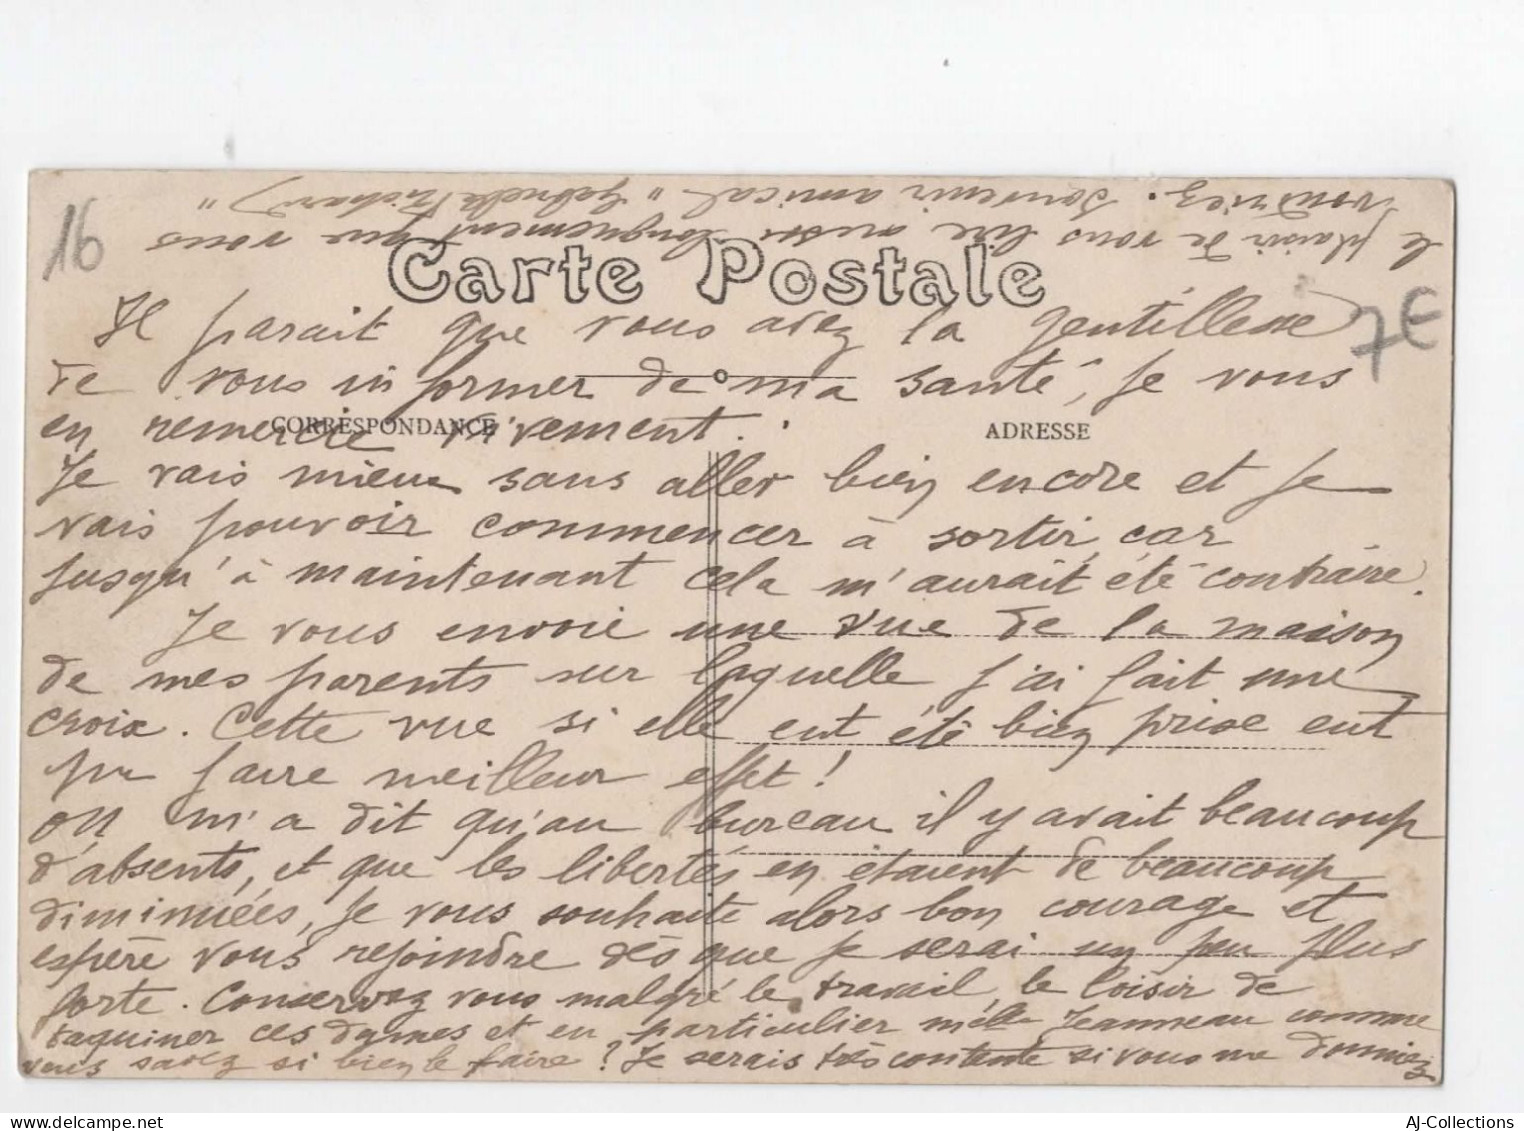 16
Carte Postale
7€
CORRESPONDANCE
ADRESSE
Il parait que vous avez la gentillesse
de vous informer de ma santé, je vous
en remercie vivement.
Je vais mieux sans aller bien encore et je
vais pouvoir commencer à sortir car
jusqu'à maintenant cela m'aurait été contraire.
Je vous envoie une vue de la maison
de mes parents sur laquelle j'ai fait une
croix. Cette vue si elle eut été bien prise eut
pu faire meilleur effet!
on m'a dit qu'au bureau il y avait beaucoup
d'absents, et que les libertés en étaient de beaucoup
diminuées, je vous souhaite alors bon courage et
espère vous rejoindre dès que je serai un peu plus
forte. Conservez vous malgré le travail le loisir de
taquiner ces dames et en particulier melle Jeanneau comme
vous savez si bien le faire? Je serais très contente si vous me donniez
le plaisir de vous lire aussi longuement que vous
voudriez. Souvenir amical " Gabrielle Richard "
AJ-Collections